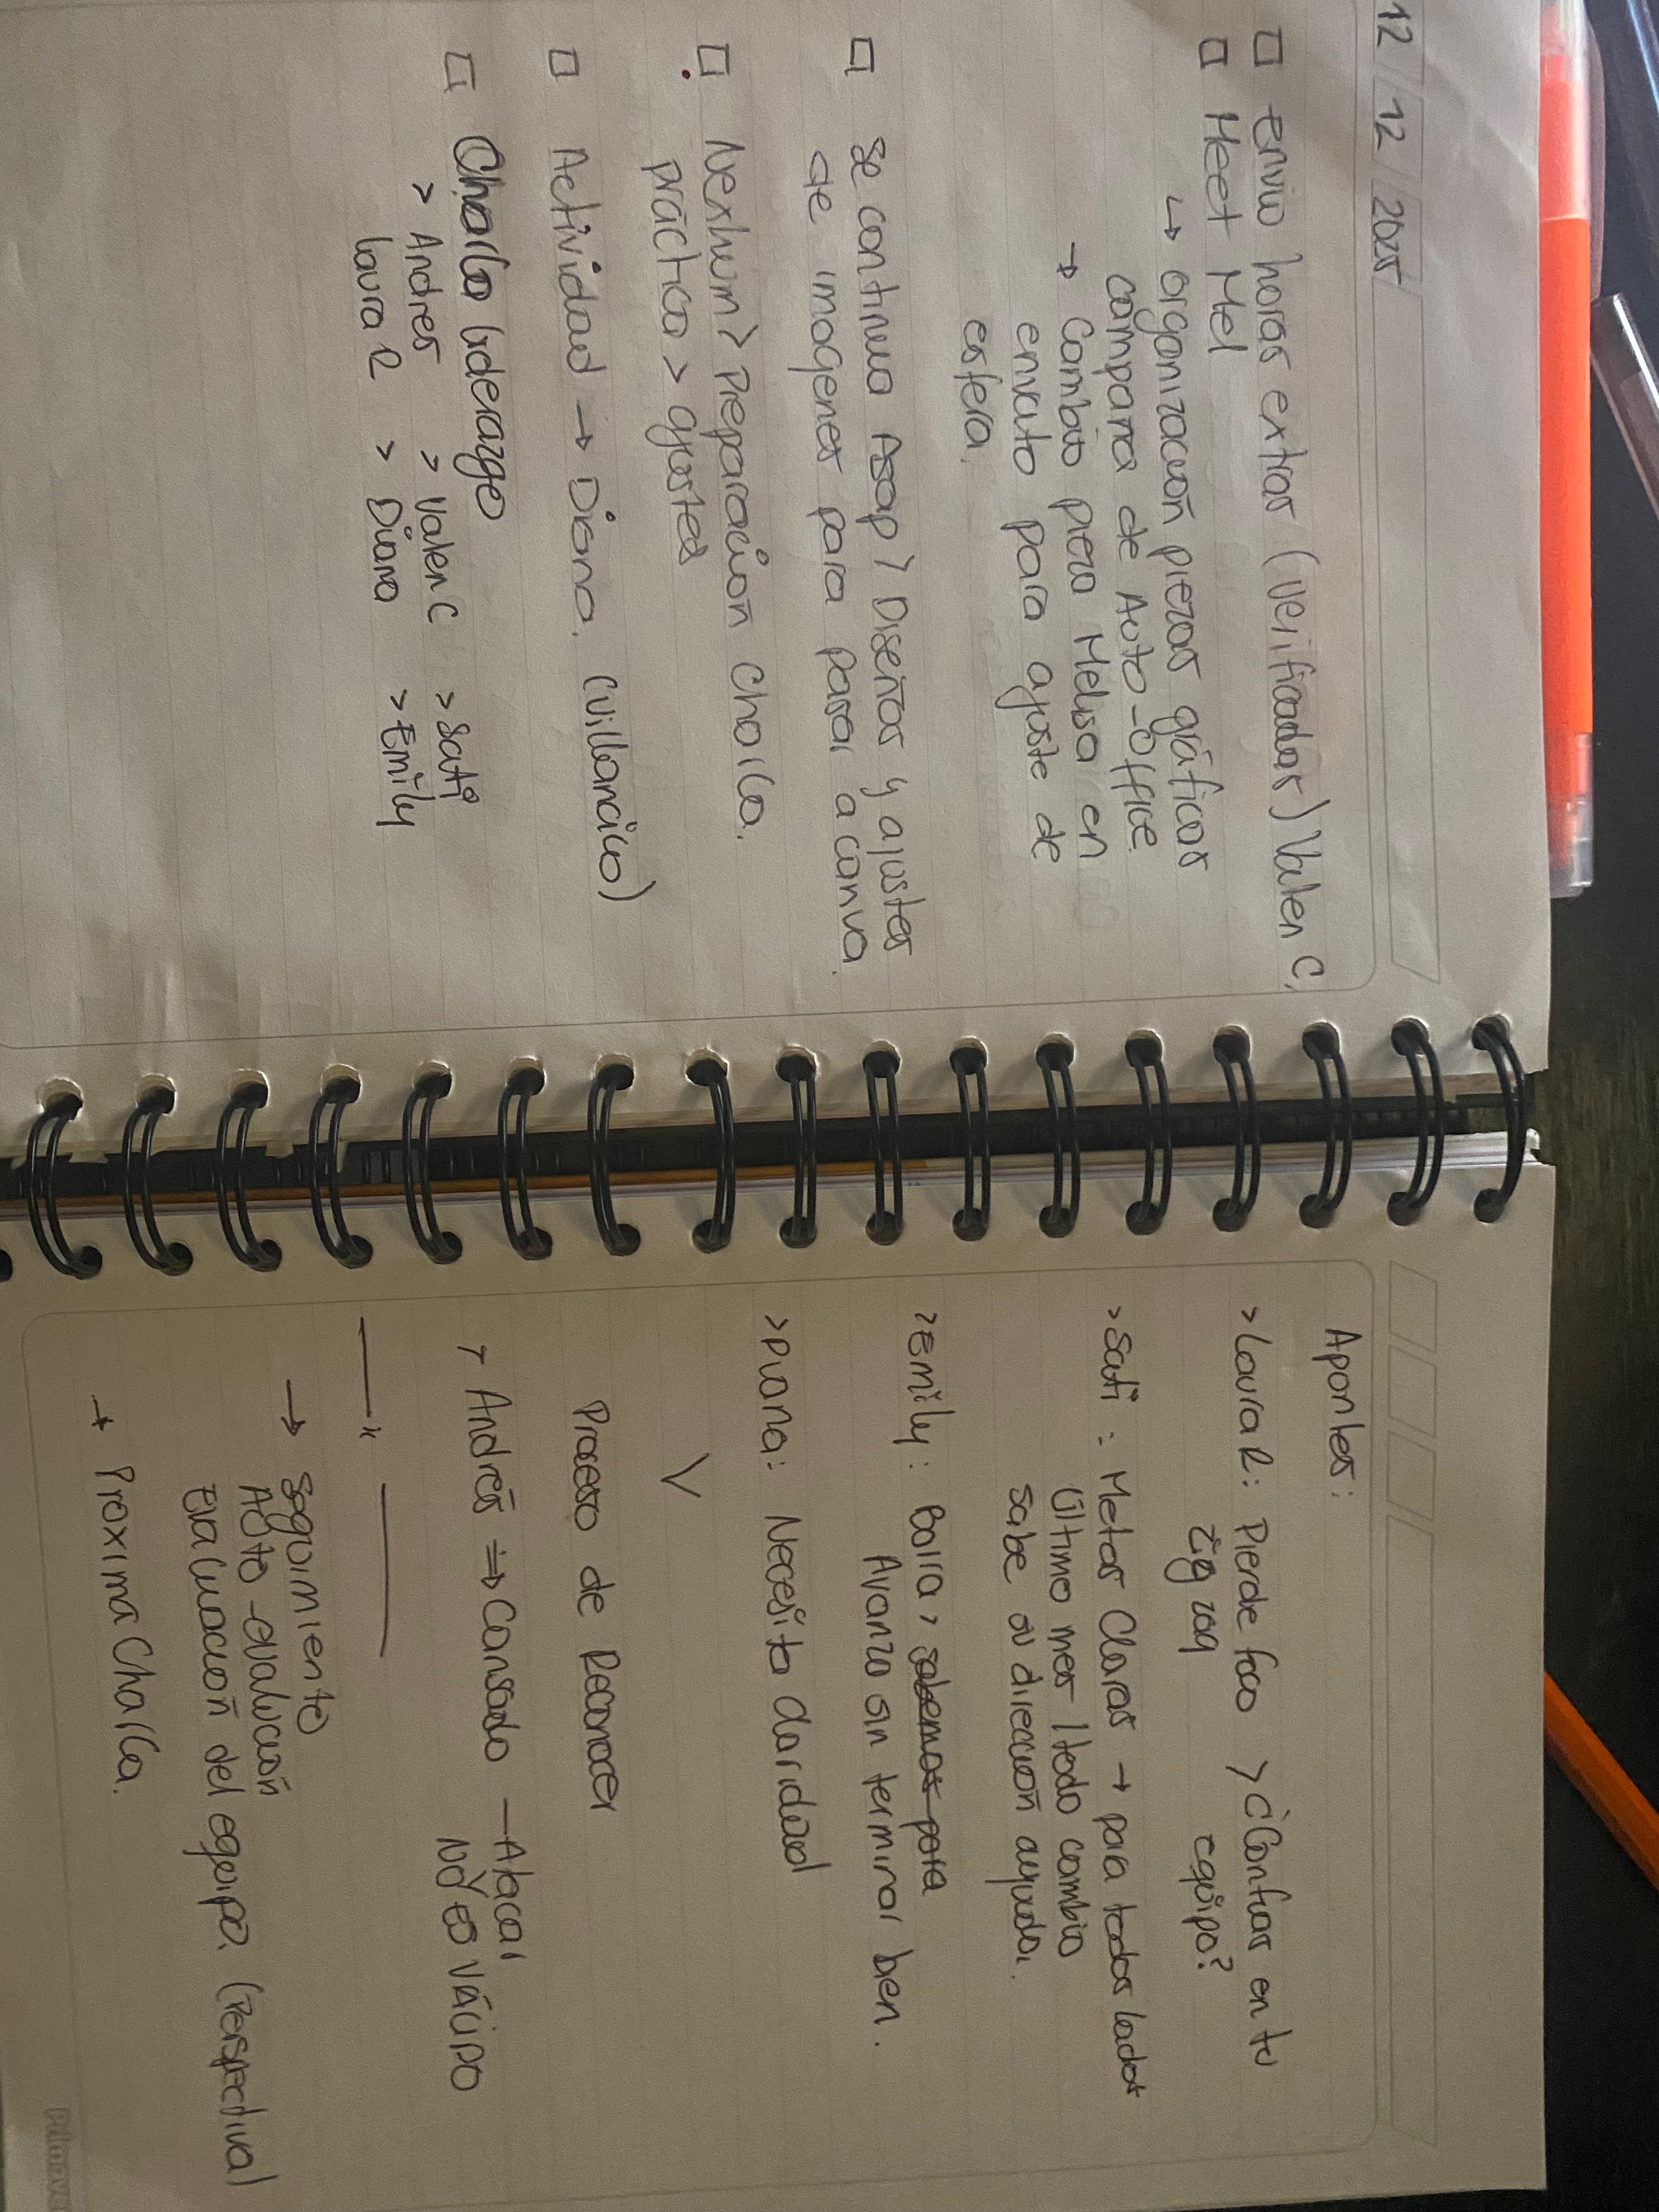 12 / 12 / 2025
□ envio horas extras (verificadas) Valen C.
□ Meet Mel
↳ organización piezas gráficas
campaña de Auto-Office.
→ Cambio pieza Melisa en
envato para ajuste de
esfera.
□ Se continua Asap > Diseños y ajustes
de imagenes para pasar a canva.
□ Nexhum > Preparación charla.
práctica > ajustes
□ Actividad → Diana. (villancico)
□ Charla liderazgo
> Andres > Valen C > Sati
Laura R > Diana > Emily
Aportes:
> Laura R: Pierde foco > ¿Confias en tu
zig zag equipo?
> Sati: Metas Claras → para todos lados
último mes / todo cambio
sabe su dirección ayuda.
> Emily: Baira, sabemos para
Avanza sin terminar bien.
> Diana: Necesito claridad
Proceso de Reconocer
> Andrés ⇒ Cansado — Atacar
NO ES VÁLIDO
→ Seguimiento
Auto-evaluación
Evaluación del equipo. (Perspectiva)
→ Proxima Charla.